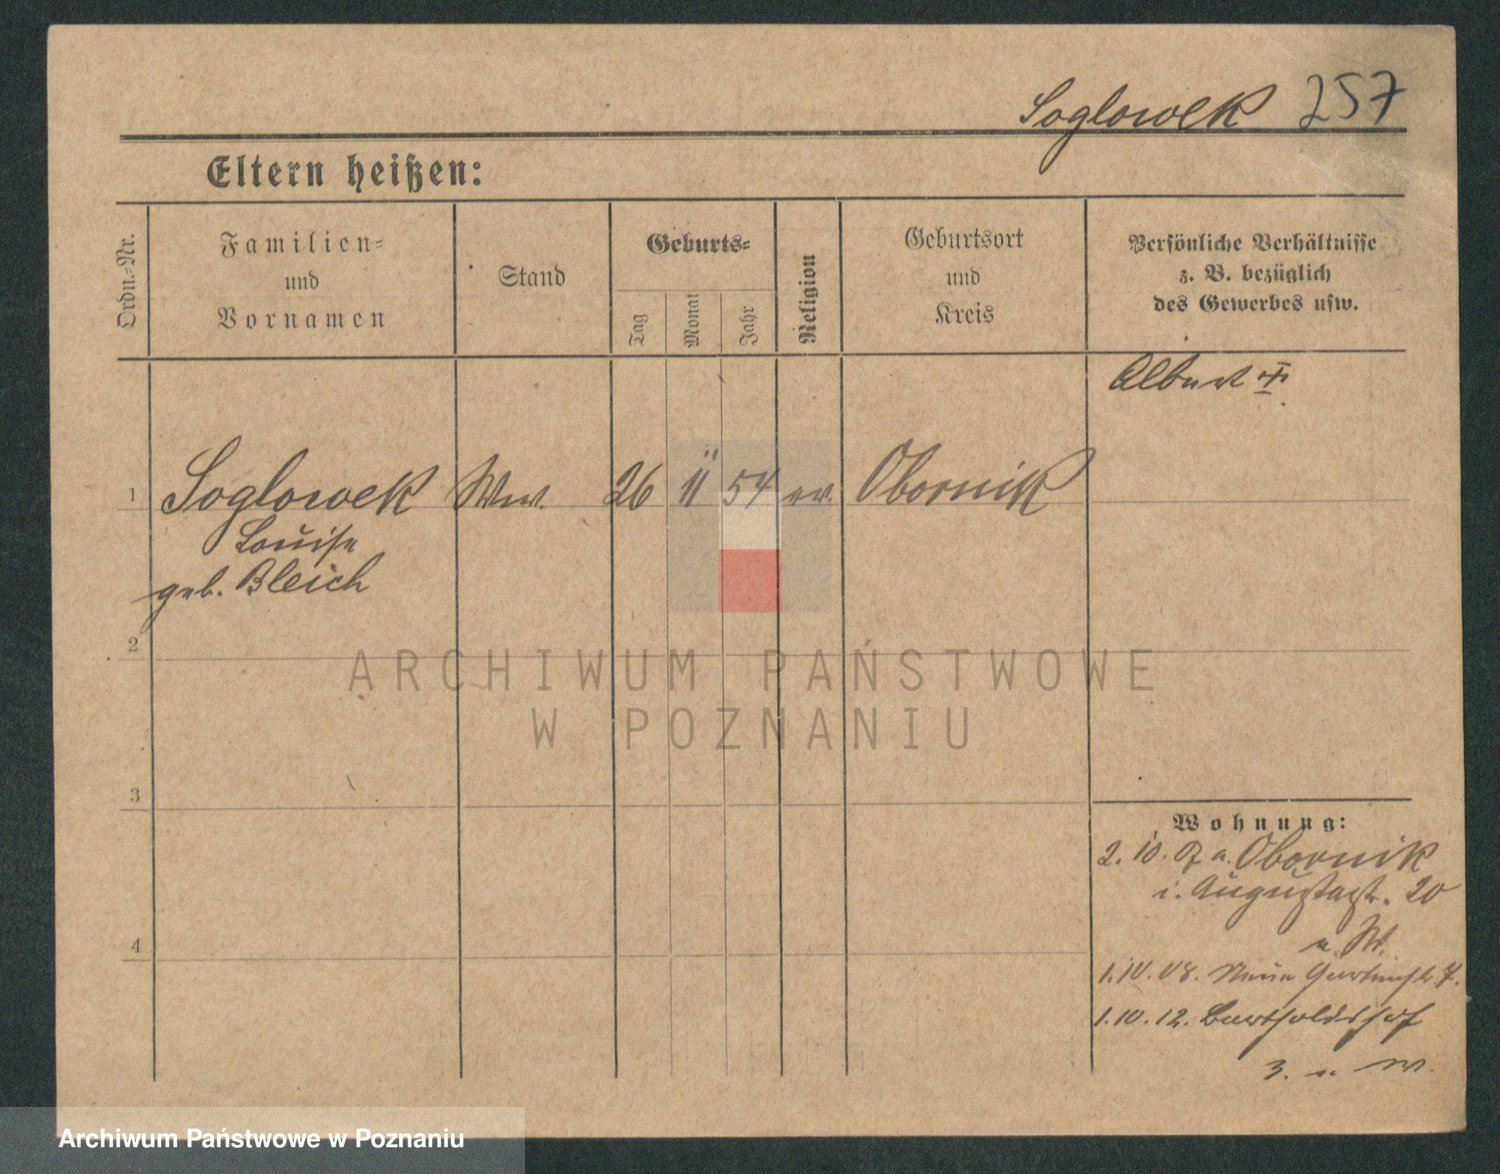 Soglowek 257
Eltern heißen:
Ordn.-Nr.
Familien=
und
Vornamen
Stand
Geburts=
Tag
Monat
Jahr
Religion
Geburtsort
und
Kreis
Persönliche Verhältnisse
z. B. bezüglich
des Gewerbes usw.
Albert
1 Soglowek Ww. 26 11 54 ev. Obornik
Louise
geb. Bleich
2
3
4
Wohnung:
2. 10. 07 a. Obornik
i. Augustastr. 20
1. IV. 08. Neue Gartenstr. 7.
1. 10. 12. Bartholdshof
3.
ARCHIWUM PAŃSTWOWE
W POZNANIU
Archiwum Państwowe w Poznaniu